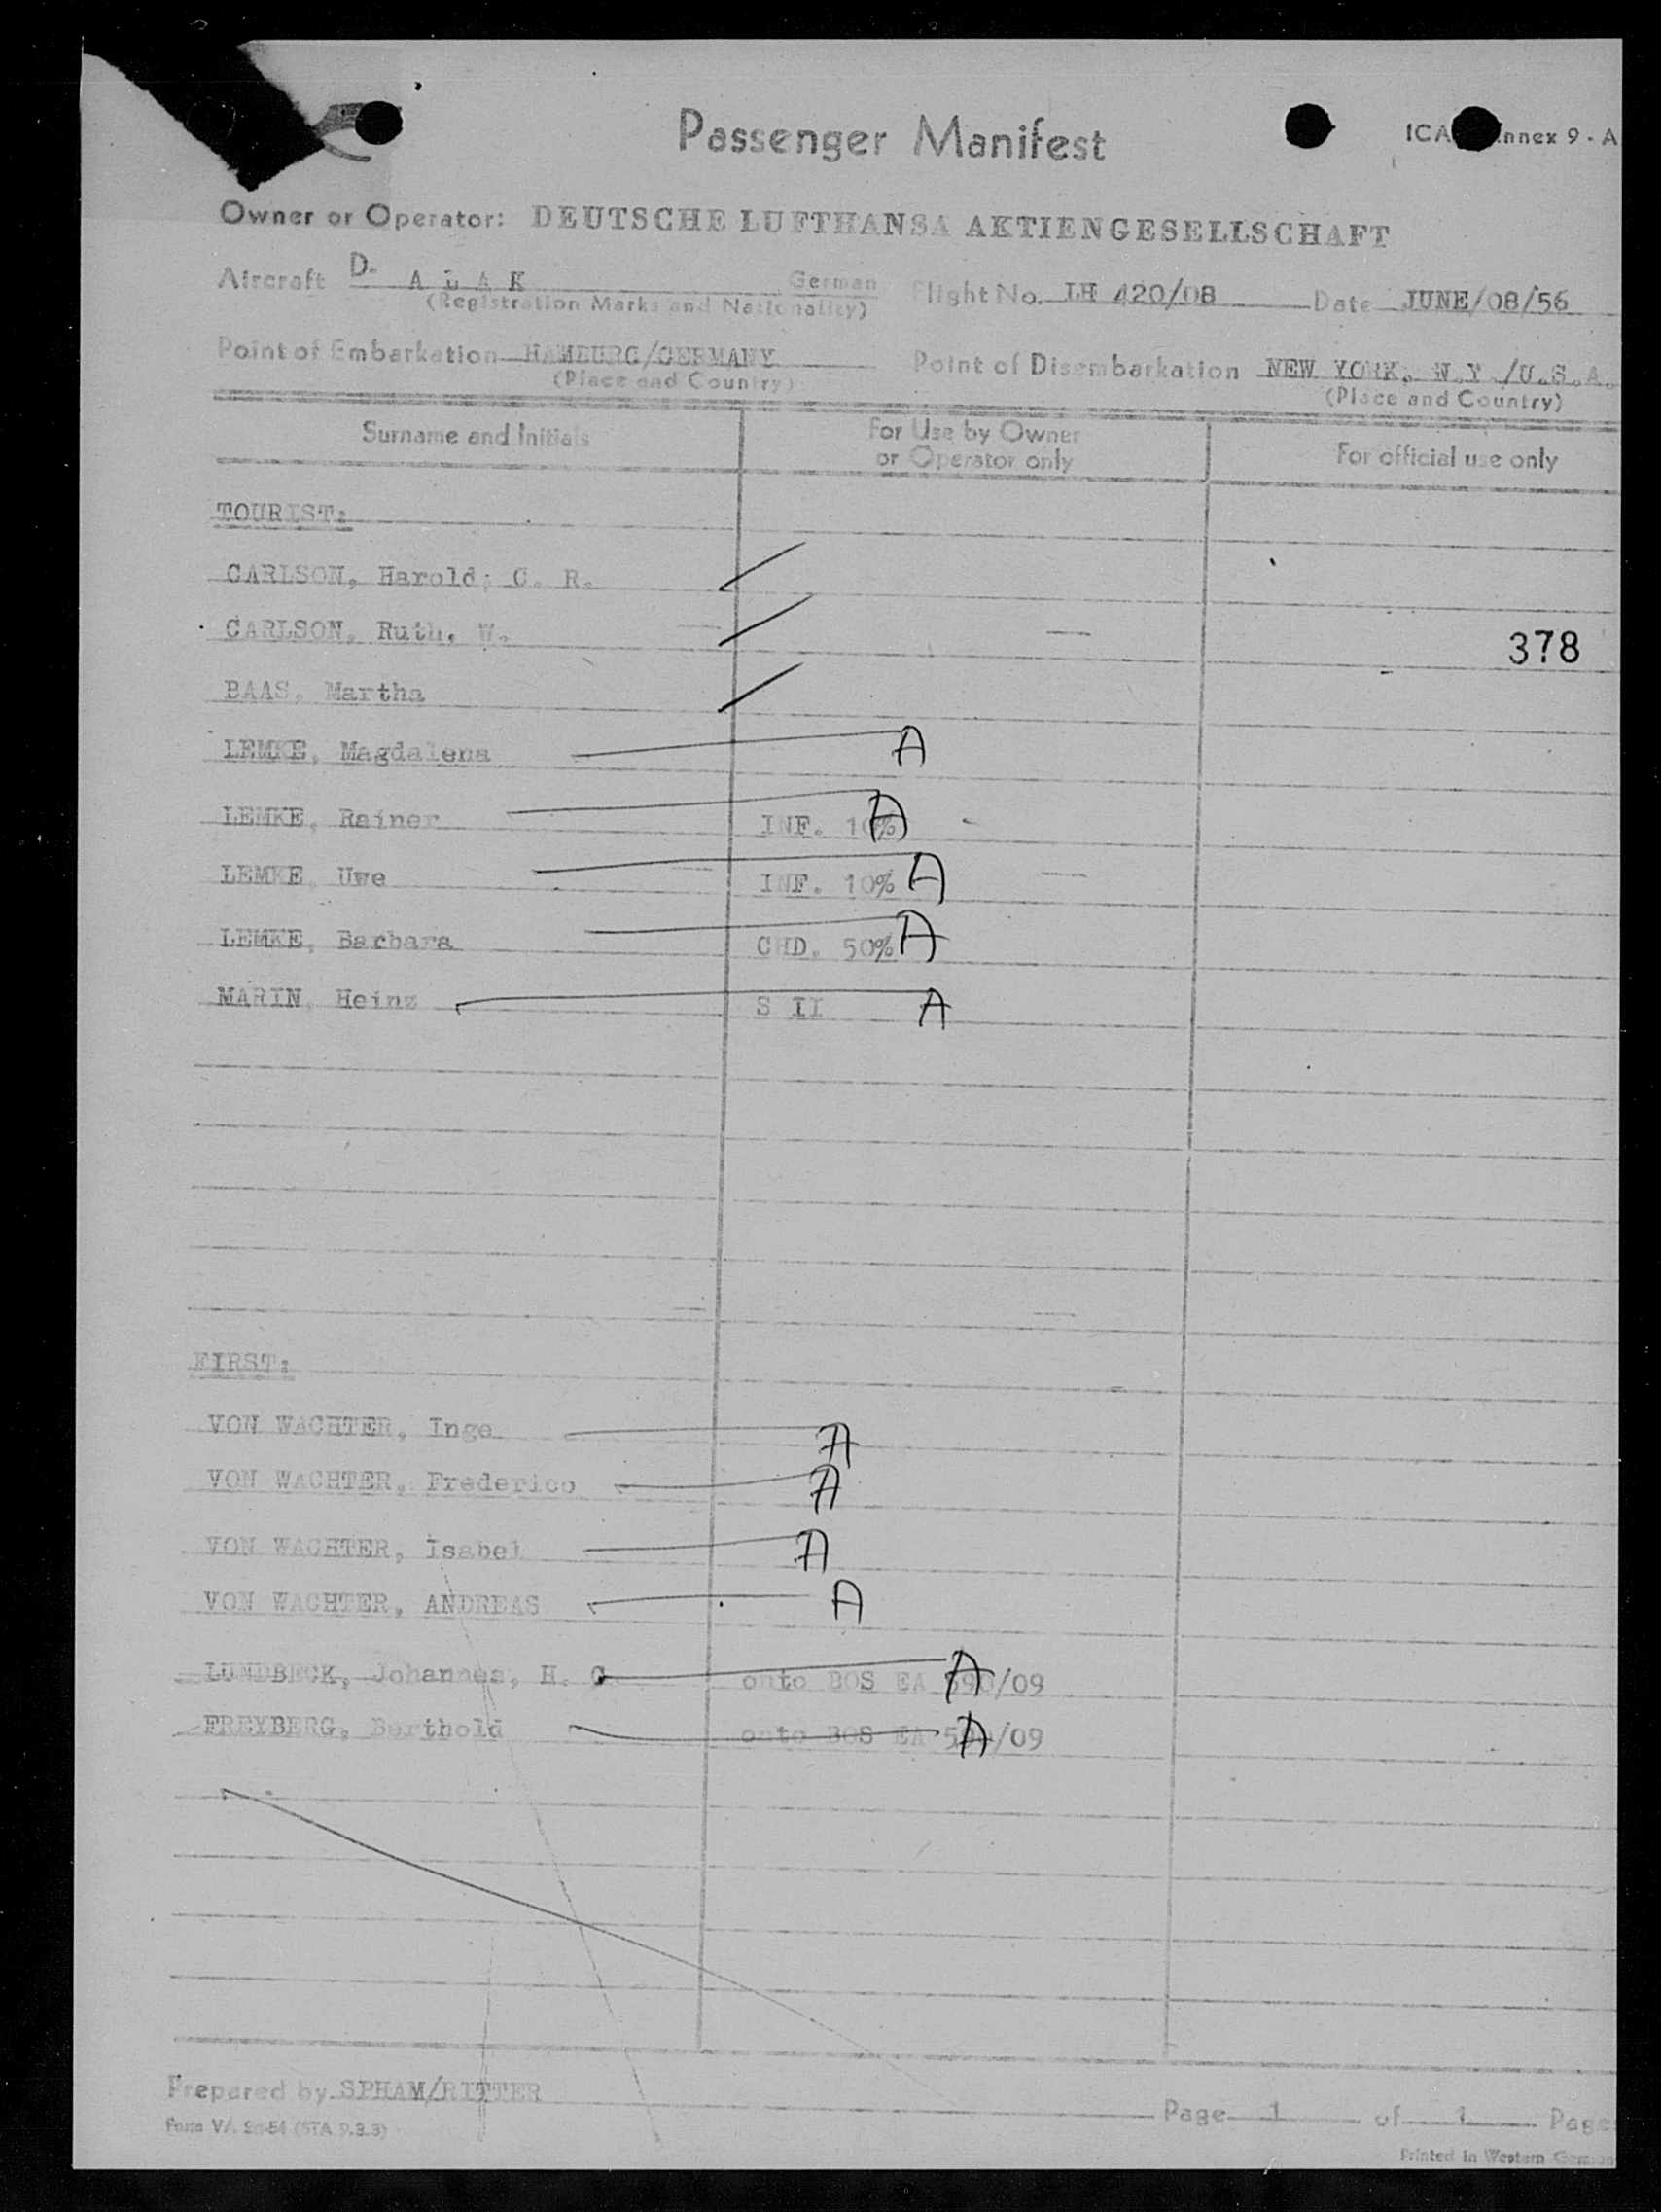 Passenger Manifest
ICA nnex 9 - A
Owner or Operator: DEUTSCHE LUFTHANSA AKTIENGESELLSCHAFT
Aircraft D- A L A K German Flight No. LH 420/08 Date JUNE/08/56
(Registration Marks and Nationality)
Point of Embarkation HAMBURG/GERMANY Point of Disembarkation NEW YORK, N.Y./U.S.A.
(Place and Country) (Place and Country)
Surname and Initials For Use by Owner or Operator only For official use only
TOURIST:
CARLSON, Harold, C. R.
CARLSON, Ruth, W. 378
BAAS, Martha
LEMKE, Magdalena A
LEMKE, Rainer INF. 10% A
LEMKE, Uwe INF. 10% A
LEMKE, Barbara CHD. 50% A
MARIN, Heinz S II A
FIRST:
VON WACHTER, Inge A
VON WACHTER, Frederico A
VON WACHTER, Isabel A
VON WACHTER, ANDREAS A
LUNDBECK, Johannes, H. C onto BOS EA 590/09 A
FREYBERG, Berthold onto BOS EA 590/09 A
Prepared by SPHAM/RITTER
Page 1 of 1 Page
Form V/ (STA 9.3.3)
Printed in Western German